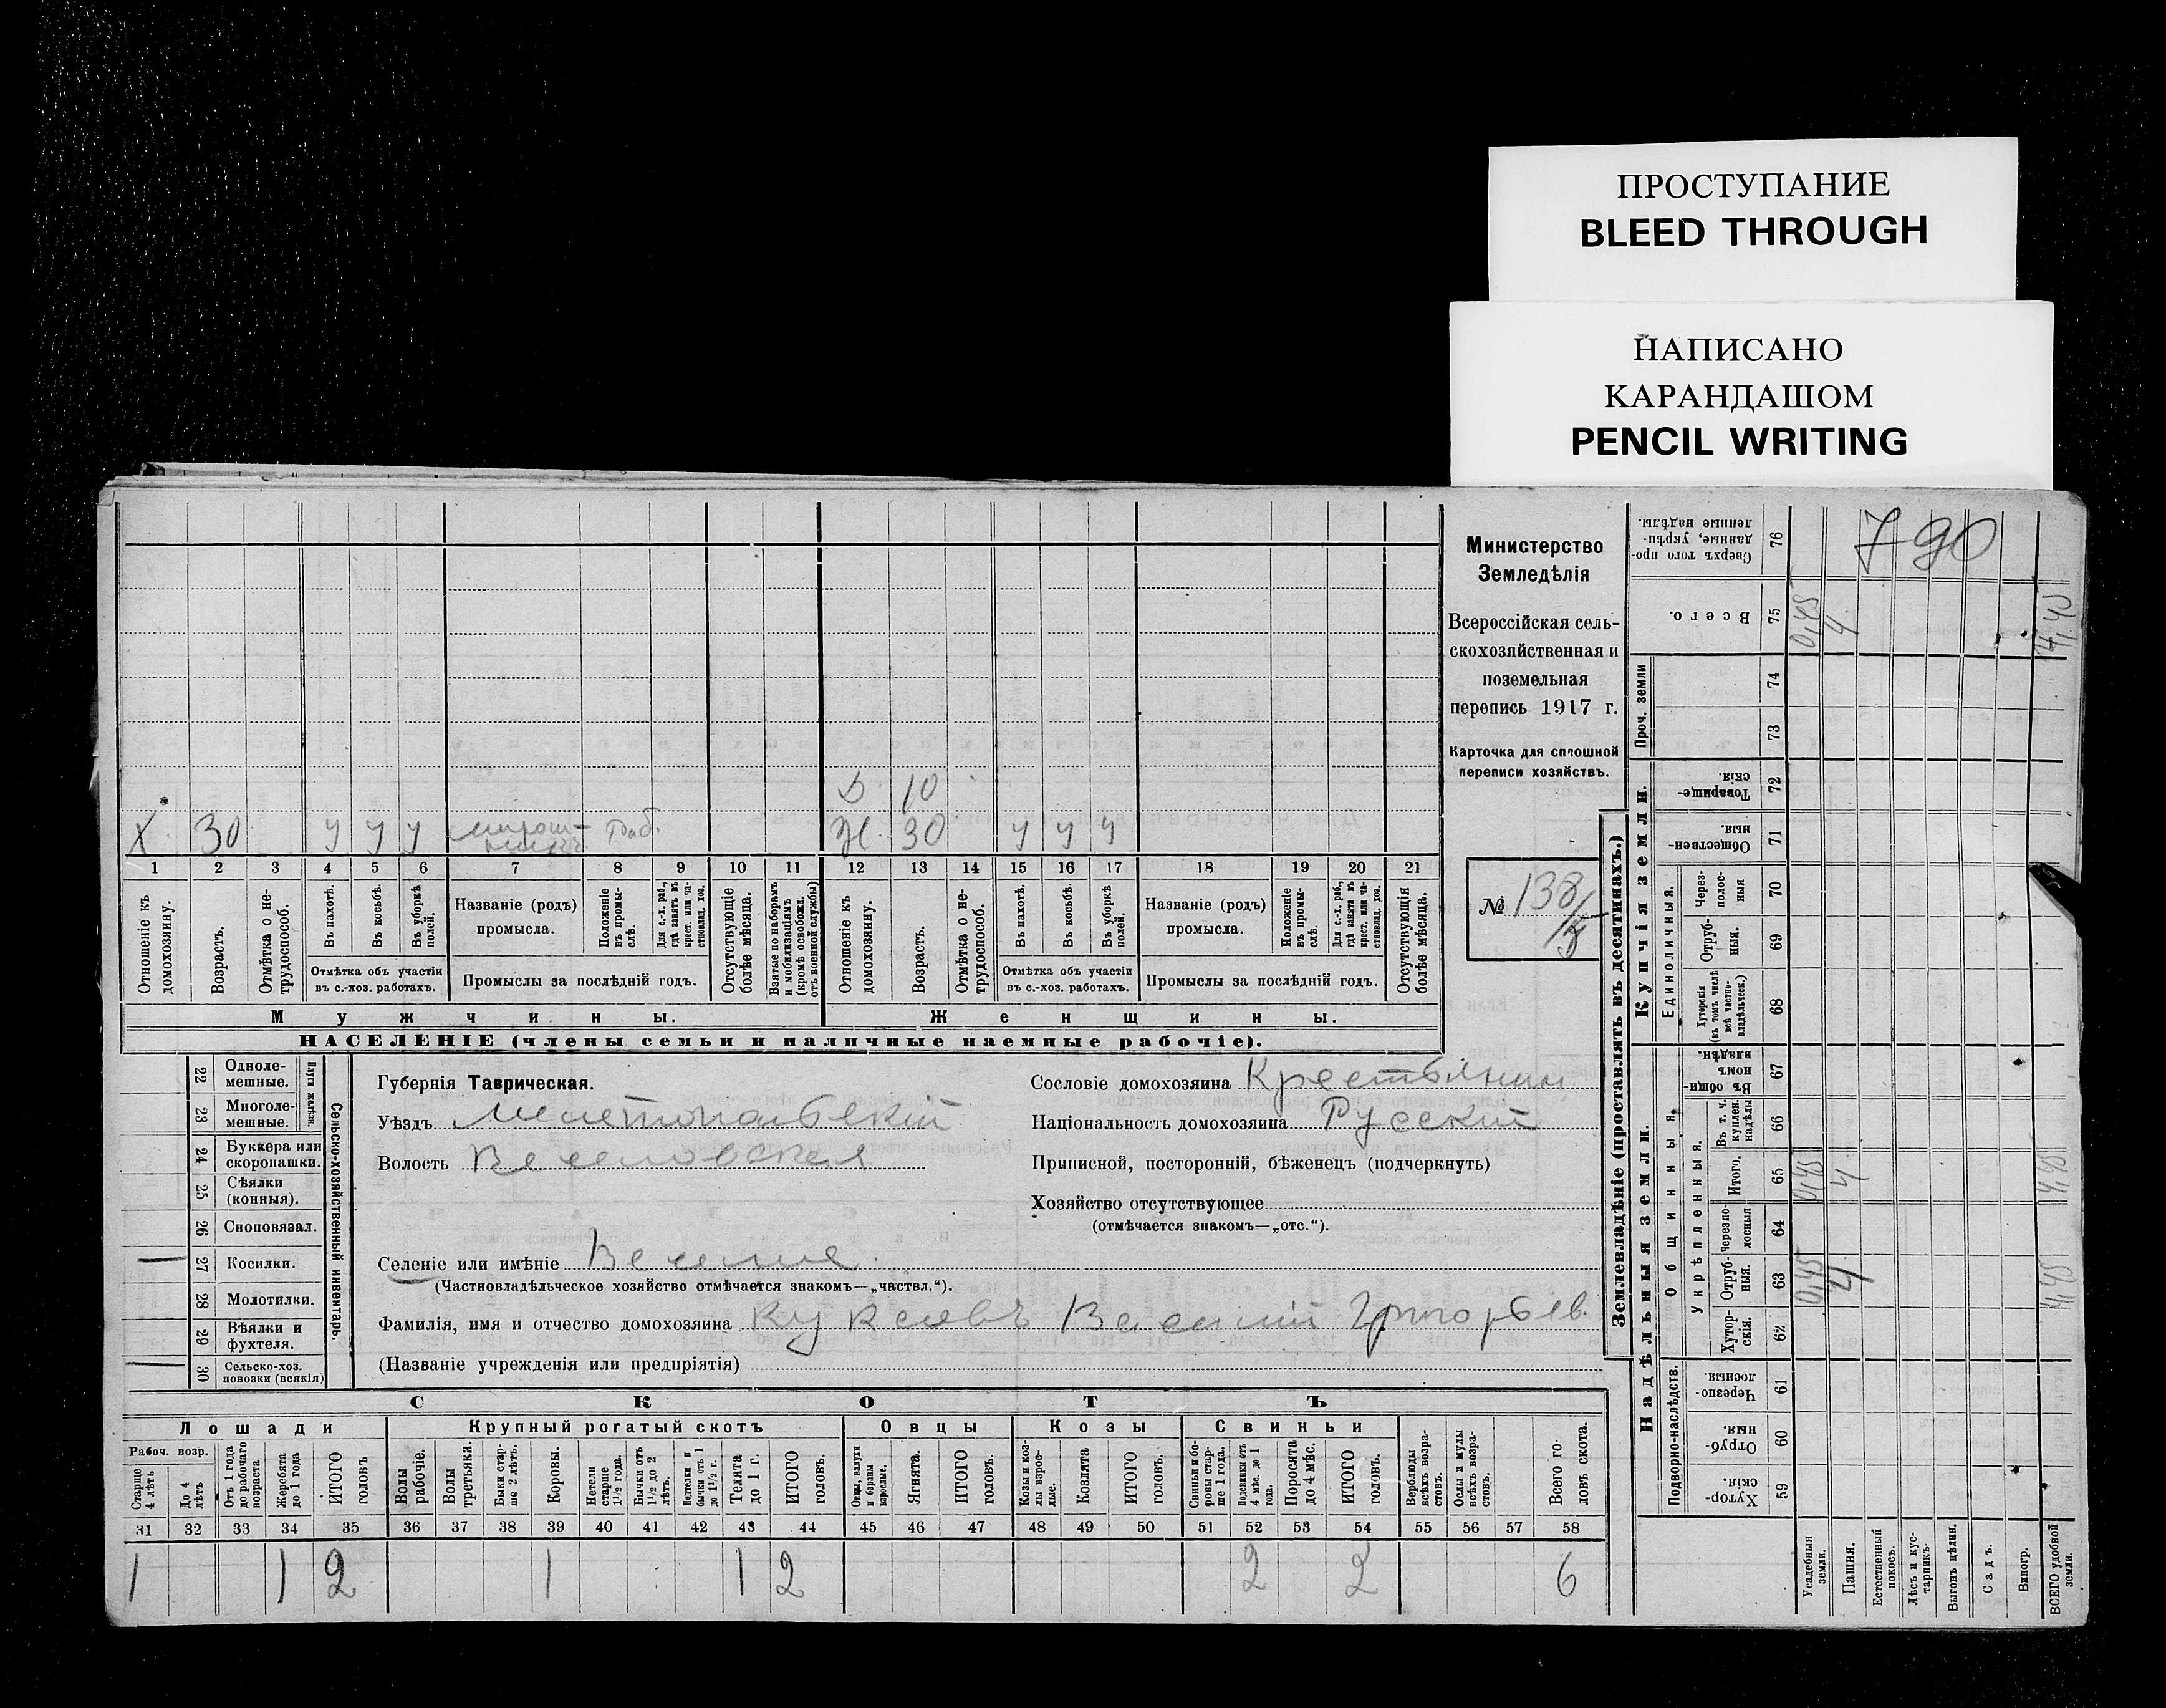 ПРОСТУПАНИЕ
BLEED THROUGH
НАПИСАНО
КАРАНДАШОМ
PENCIL WRITING
Министерство
Земледѣлія
Всероссійская сель-
скохозяйственная и
поземельная
перепись 1917 г.
Карточка для сплошной
переписи хозяйствъ.
№ 138
790
Д 10
Х 30 У У У Раб. Ж 30 У У У
1 2 3 4 5 6 7 8 9 10 11 12 13 14 15 16 17 18 19 20 21
Отношеніе къ домохозяину.
Возрастъ.
Отмѣтка о не-трудоспособ.
Въ пахотѣ.
Въ косьбѣ.
Въ уборкѣ полей.
Отмѣтка объ участіи
въ с.-хоз. работахъ.
Названіе (родъ)
промысла.
Положеніе въ промы-слѣ.
Для с.-х. раб., гдѣ занятъ въ крест. или ча-стновлад. хоз.
Промыслы за послѣдній годъ.
Отсутствующіе болѣе мѣсяца.
Взятые по наборамъ и мобилизаціямъ (кромѣ освобожд. отъ военной службы)
Отношеніе къ домохозяину.
Возрастъ.
Отмѣтка о не-трудоспособ.
Въ пахотѣ.
Въ косьбѣ.
Въ уборкѣ полей.
Отмѣтка объ участіи
въ с.-хоз. работахъ.
Названіе (родъ)
промысла.
Положеніе въ промы-слѣ.
Для с.-х. раб., гдѣ занята въ крест. или ча-стновлад. хоз.
Промыслы за послѣдній годъ.
Отсутствующія болѣе мѣсяца.
Мужчины.
Женщины.
НАСЕЛЕНІЕ (члены семьи и наличные наемные рабочіе).
Сельско-хозяйственный инвентарь.
Плуги желѣзн.
22 Одноле-
мешные.
23 Многоле-
мешные.
24 Буккера или
скоропашки.
25 Сѣялки
(конныя).
26 Сноповязал.
27 Косилки.
28 Молотилки.
29 Вѣялки и
фухтеля.
30 Сельско-хоз.
повозки (всякія)
Губернія Таврическая.
Уѣздъ Мелитопольскій
Волость Веселовская
Селеніе или имѣніе Веселое
(Частновладѣльческое хозяйство отмѣчается знакомъ—„частвл.“).
Фамилія, имя и отчество домохозяина Василій Григорьев.
(Названіе учрежденія или предпріятія)
Сословіе домохозяина Крестьянин
Національность домохозяина Русскій
Приписной, посторонній, бѣженецъ (подчеркнуть)
Хозяйство отсутствующее
(отмѣчается знакомъ—„отс.“).
СКОТЪ
Лошади Крупный рогатый скотъ Овцы Козы Свиньи
Рабоч. возр.
Старше 4 лѣтъ
До 4 лѣтъ
Отъ 1 года до рабочаго возраста
Жеребята до 1 года
ИТОГО головъ
Волы рабочіе.
Волы третьяки.
Быки стар-ше 2 лѣтъ.
Коровы.
Нетели старше 1½ года.
Бычки отъ 1½ до 2 лѣтъ.
Подтелки и бычки отъ 1 до 1½ г.
Телята до 1 г.
ИТОГО головъ.
Овцы, валухи и бараны взрослые.
Ягнята.
ИТОГО головъ.
Козы и коз-лы взрос-лые.
Козлята
ИТОГО головъ.
Свиньи и бо-ровы стар-ше 1 года.
Подсвинки отъ 4 мѣс. до 1 года.
Поросята до 4 мѣс.
ИТОГО головъ.
Верблюды всѣхъ возра-стовъ.
Ослы и мулы всѣхъ возра-стовъ.
Всего го-ловъ скота.
31 32 33 34 35 36 37 38 39 40 41 42 43 44 45 46 47 48 49 50 51 52 53 54 55 56 57 58
1 1 2 1 1 2 2 2 6
Землевладѣніе (проставлять въ десятинахъ.)
Надѣльныя земли.
Купчія земли.
Проч. земли
Подворно-наслѣдств.
Общинныя.
Укрѣпленныя.
Единоличныя.
Сверхъ того про-данные, укрѣп-ленные надѣлы. 76
Всего. 75 0,45 4 4,45
74
73
Товарище-скія. 72
Обществен-ныя. 71
Через-полос-ныя 70
Отруб-ныя. 69
Хуторскія (въ томъ числѣ всѣ частно-владѣльческ.) 68
Въ общин-номъ владѣн. 67
Въ т. ч. куплен. надѣлы 66
Итого. 65 0,45 4 4,45
Черезпо-лосныя 64
Отруб-ныя. 63 0,45 4 4,45
Хутор-скія. 62
Черезпо-лосныя. 61
Отруб-ныя. 60
Хутор-скія. 59
Усадебныя земли.
Пашня.
Естественный покосъ.
Лѣсъ и кус-тарникъ
Выгонъ цѣлин.
Садъ.
Виногр.
ВСЕГО удобной земли.